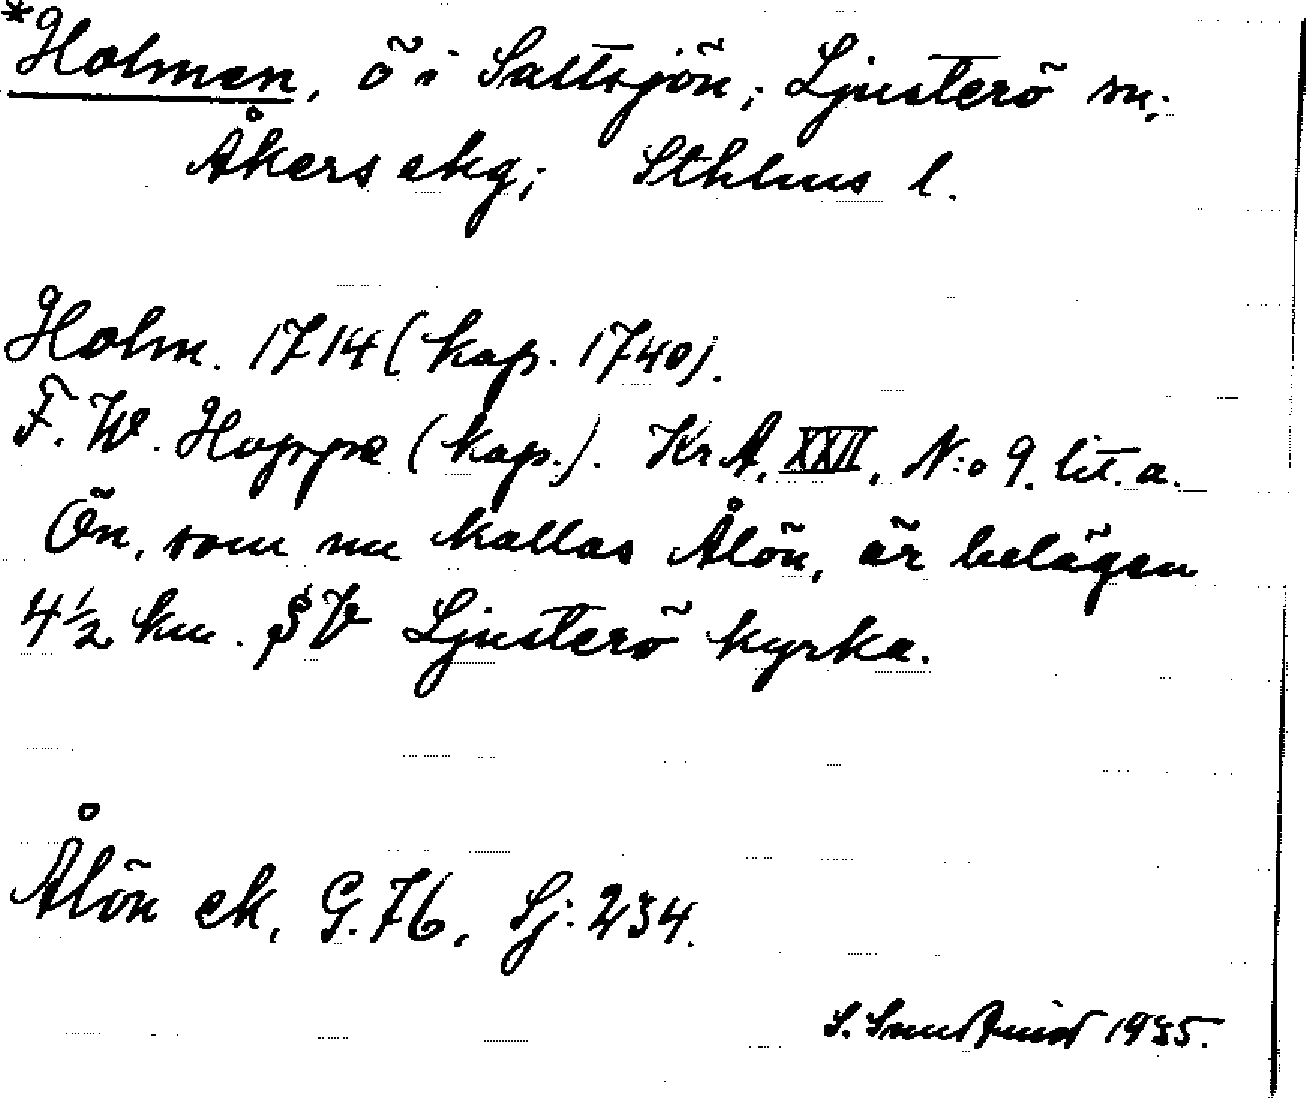 *Holmen, ö i Saltsjön; Ljusterö sn;
Åkers skg; Sthlms l.
Holm. 1714 (kop. 1740).
F. W. Hoppe (kop.). Kr A. XXII, N:o 9. lit. a.
Ön, som nu kallas Ålön, är belägen
4½ km. SV Ljusterö kyrka.
Ålön ek, G. 76, Sj: 234.
S. 1935.